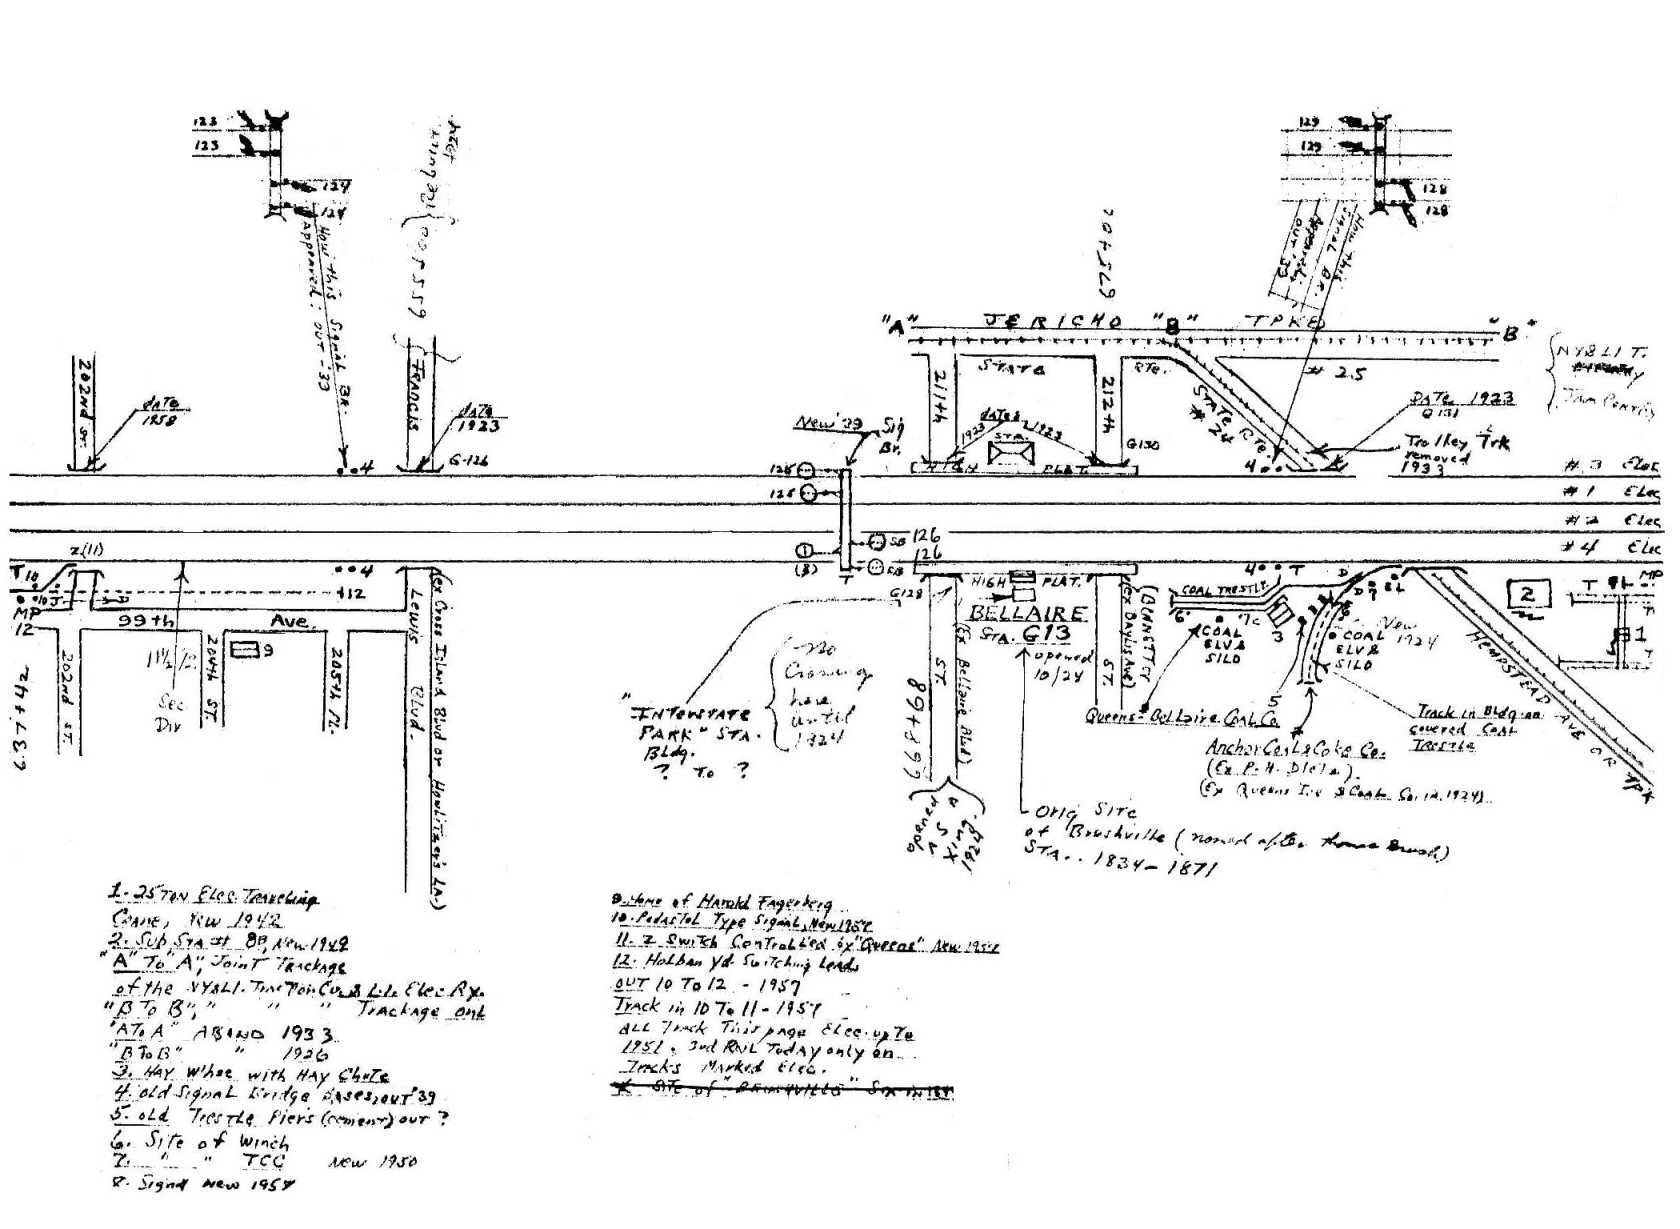 123
123
124
124
How this Signal Br.
appeared: out -39
129
129
128
128
How this
Signal Br.
Appeared:
out '39
"A" JERICHO "B" TPKE "B"
STATE RTE. # 25
STATE RTE.
# 24
202nd ST.
DATE
1958
FRANCIS
DATE
1923
G-126
New '39
Sig
Br.
211th
212th
DATES
1923
1923
STA.
HIGH PLAT.
G130
DATE 1923
G131
Trolley Trk
removed
1933
4
4
#3 Elec
#1 Elec
#2 Elec
#4 Elec
125
125
SB 126
126
SB
1
(8)
T
Z(11)
T10
MP
12
99th Ave.
12
4
202nd ST.
11 1/2 12
Sec
Div
204th ST.
9
205th Pl.
Lewis Blvd.
(ex Cross Island Blvd or Howlitzer's LA.)
G128
HIGH PLAT.
BELLAIRE
STA. G13
opened
10/24
ST.
(Ex Bellaire Blvd)
ST.
(Ex Baylis Ave)
(BENNETT)
"INTERSTATE
PARK" STA.
Bldg.
? To ?
No
Crossing
here
until
1924
opened
AS A
Xing.
1924
COAL TRESTLE
4 T
6
7c
3
COAL
ELV &
SILO
New
1924
COAL
ELV &
SILO
5
Queens-Bellaire Coal Co.
Anchor Coal & Coke Co.
(Ex P.H. Diele).
(Ex Queens Ice & Coal Co. in 1924)
Track in Bldg on
covered Coal
Trestle
HEMPSTEAD AVE OR TPK
2
MP
T
1
T
Orig Site
of Brushville (named after Thomas Brush)
STA.. 1834-1871
1. 25 TON Elec Traveling
Crane, New 1942
2. Sub Sta # 8B, New 1949
"A" To "A", Joint Trackage
of the NY&L.I. Traction Co. & L.I. Elec Ry.
"B To B", " " " Trackage only
"A To A" ABAND 1933
"B To B" " 1926
3. HAY Whse with HAY Chute
4. old Signal Bridge Bases, out '39
5. old Trestle Piers (cement) out ?
6. Site of Winch
7. " " TCC New 1950
8. Signal New 1957
9. Home of Harold Fagerberg
10. Pedestal Type Signal, New 1957
11. Z Switch Controlled by "Queens" New 1957
12. Holban Yd. Switching Leads
out 10 To 12 - 1957
Track in 10 To 11 - 1957
ALL Track This page Elec. up To
1951. 3rd RAIL Today only on
Tracks Marked Elec.